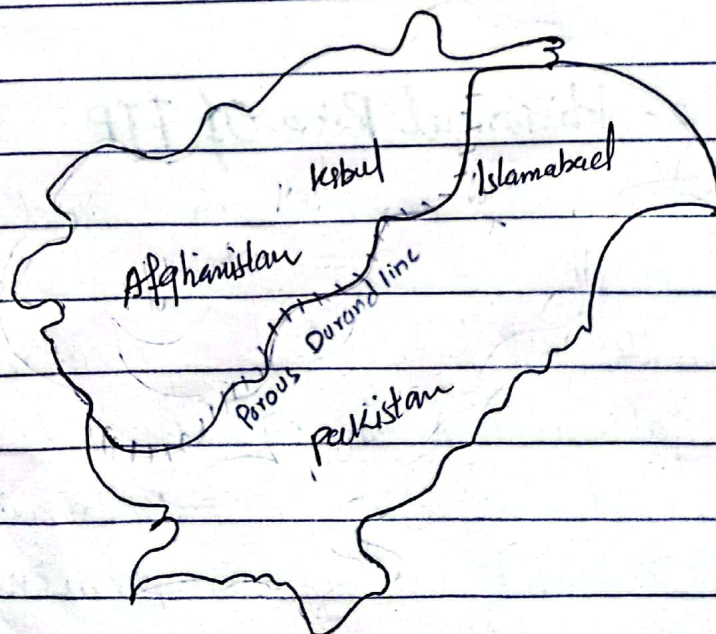 Kabul
Islamabad
Afghanistan
Porous Durand line
Pakistan